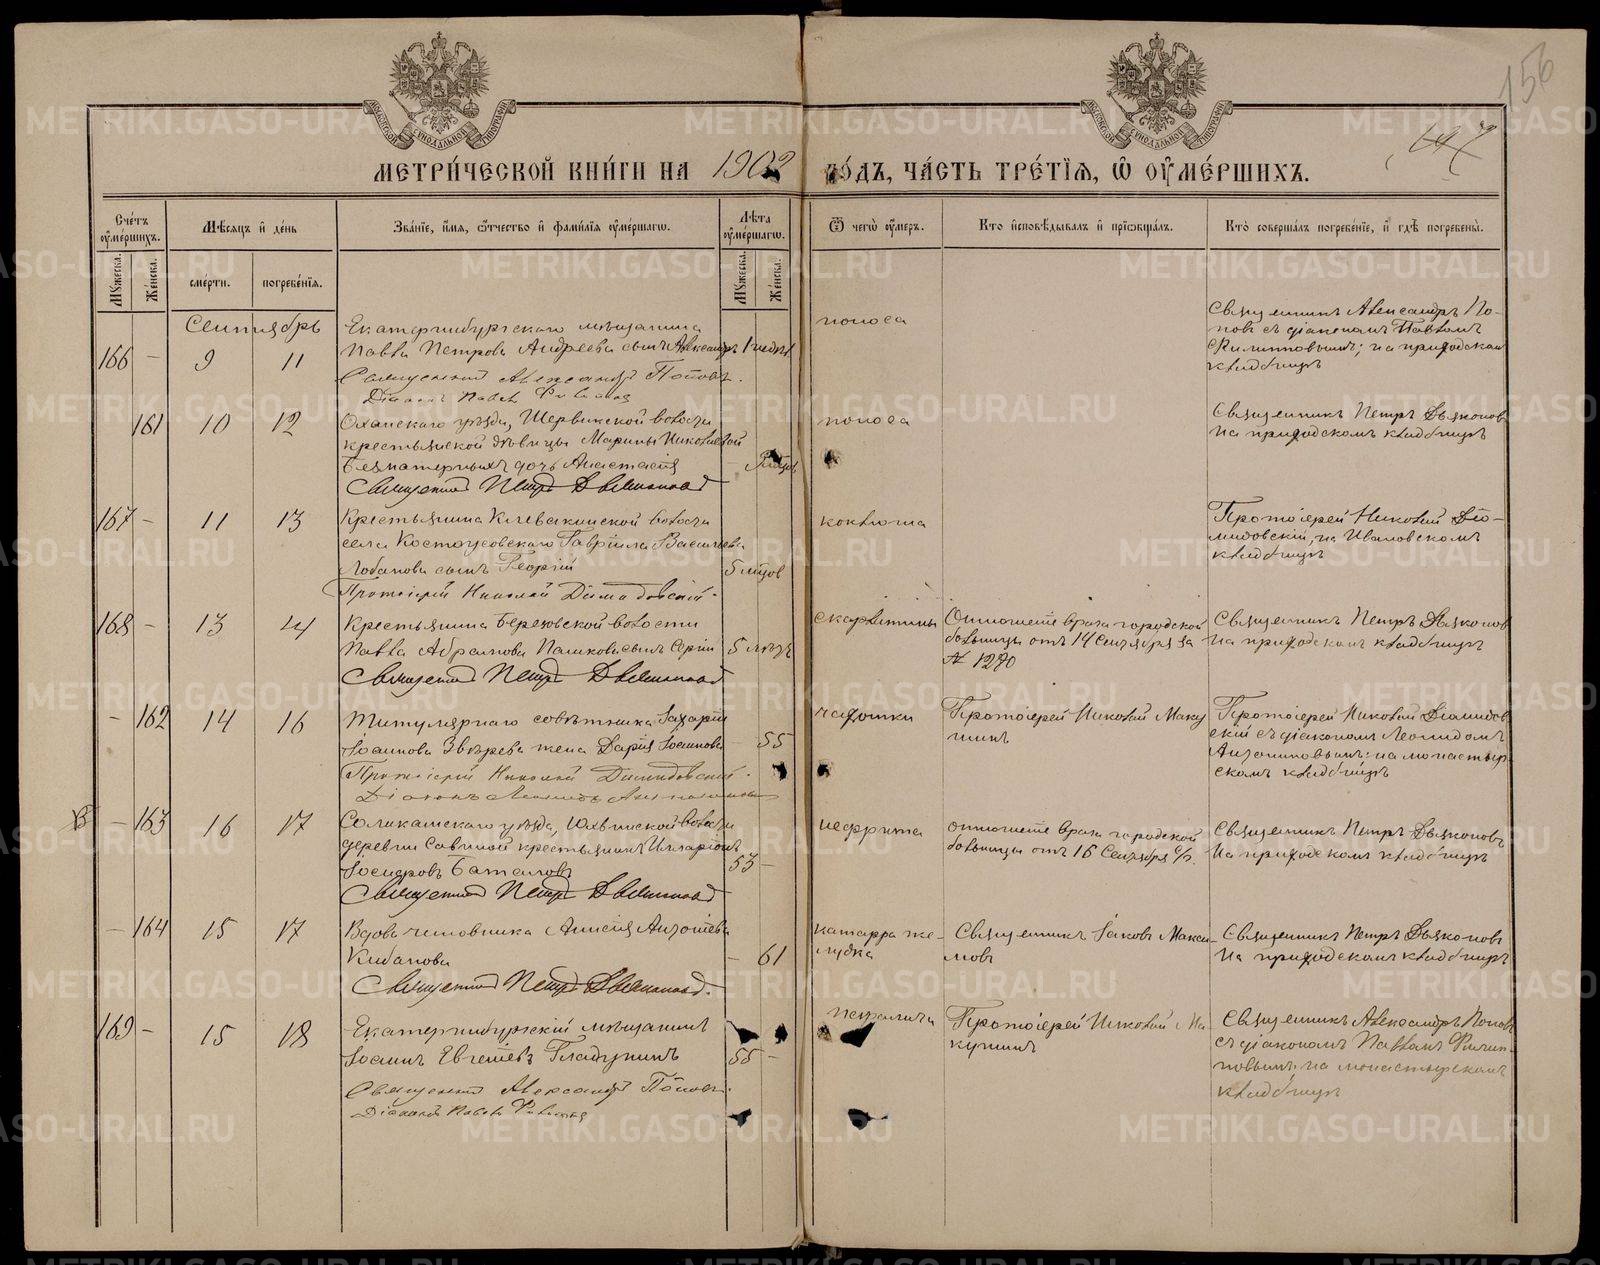 156
147
МОСКОВСКОЙ СѴНОДАЛЬНОЙ ТИПОГРАФІИ
МОСКОВСКОЙ СѴНОДАЛЬНОЙ ТИПОГРАФІИ
МЕТРИ́ЧЕСКОЙ КНИ́ГИ НА 1902 ГО́ДЪ, ЧА́СТЬ ТРЕ́ТІѦ, Ѡ ОУМЕ́РШИХЪ.
Сче́тъ оуме́ршихъ.
Мѣ́сѧцъ и де́нь
Зва́ніе, и́мѧ, ѻ́тчество и фами́лїѧ оуме́ршагѡ.
Лѣ́та оуме́ршагѡ.
Ѿ чегѡ̀ оу́меръ.
Кто̀ исповѣ́дывалъ и пріѡбща́лъ.
Кто̀ соверша́лъ погребе́ніе, и гдѣ̀ погребены̀.
Мꙋ́жеска.
Же́нска.
сме́рти.
погребе́нїѧ.
Мꙋ́жеска.
Же́нска.
Сентябрь
166 – 9 11
Екатеринбургскаго мѣщанина
Павла Петрова Андреева сынъ Александръ
Священникъ Александръ Поповъ.
Діаконъ Павелъ
поноса
Священникъ Александръ По-
повъ съ діакономъ Павломъ
Филипповымъ; на приходскомъ
кладбищѣ
161 10 12
Оханскаго уѣзда, волости
крестьянской дѣвицы Марины Николаевой
дочь Анастасія
Священникъ Петръ Дьяконовъ
поноса
Священникъ Петръ Дьяконовъ
на приходскомъ кладбищѣ
167 – 11 13
Крестьянина Клевакинской волости
села Костоусовскаго Гавріила Васильева
Лобанова сынъ Георгій
5 мѣсцов
Протоіерей Николай Діомидовскій.
коклюша
Протоіерей Николай Діо-
мидовскій, на Ивановскомъ
кладбищѣ
168 – 13 14
Крестьянина Березовской волости
Павла Абрамова Пашкова сынъ Сергій
5 лѣтъ
Священникъ Петръ Дьяконовъ
скарлатины
Отношеніе врача городской
больницы отъ 14 Сентября за
№ 1270
Священникъ Петръ Дьяконовъ
на приходскомъ кладбищѣ
– 162 14 16
Титулярнаго совѣтника Захаріи
Іоаннова Звѣрева жена Дарія Іоаннова
– 55
Протоіерей Николай Діомидовскій.
Діаконъ Леонидъ Антониновъ
чахотки
Протоіерей Николай Маку
шинъ
Протоіерей Николай Діомидов
скій съ діакономъ Леонидомъ
Антониновымъ: на монастыр-
скомъ кладбищѣ
– 163 16 17
Соликамскаго уѣзда, Юсвинской волости
деревни Савиной крестьянинъ Илларіонъ
Баталовъ
53 –
Священникъ Петръ Дьяконовъ
нефрита
отношеніе врача городской
больницы отъ 16 Сентября с/г.
Священникъ Петръ Дьяконовъ
на приходскомъ кладбищѣ
– 164 15 17
Вдова чиновника Анисія Антонiева
Кибанова
– 61
Священникъ Петръ Дьяконовъ.
катарра же-
лудка
Священникъ Іаковъ Макси-
мовъ
Священникъ Петръ Дьяконовъ
на приходскомъ кладбищѣ
169 – 15 18
Екатеринбургскій мѣщанинъ
Іоаннъ Евгеніевъ Гладунинъ
55 –
Священникъ Александръ Поповъ.
Діаконъ Павелъ
паралича
Протоіерей Николай Ма-
кушинъ
Священникъ Александръ Поповъ
съ діакономъ Павломъ Филип-
повымъ; на монастырскомъ
кладбищѣ
METRIKI.GASO-URAL.RU